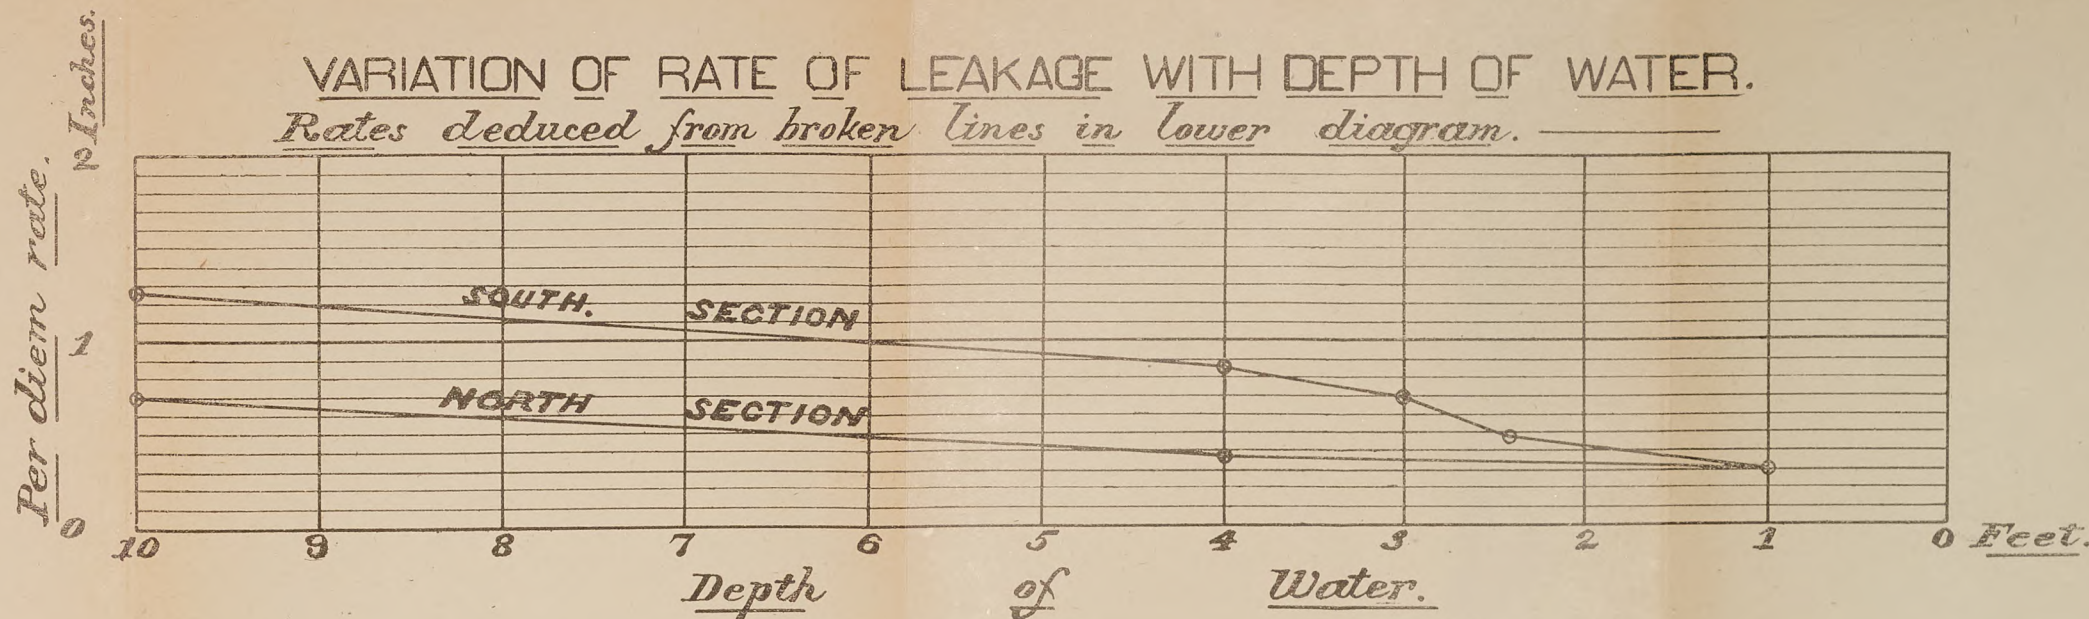 VARIATION OF RATE OF LEAKAGE WITH DEPTH OF WATER.
Rates deduced from broken lines in lower diagram.
Inches.
Per diem rate.
1
0
SOUTH. SECTION
NORTH SECTION
10 9 8 7 6 5 4 3 2 1 0 Feet.
Depth of Water.